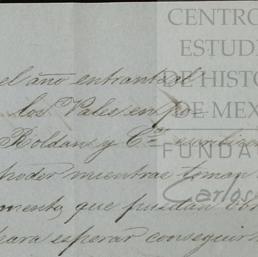 CENTRO
ESTUDI
DE HISTO
DE MEX
FUNDA
Carlos
el año entrante al
los Vales en po
Roldan y Cª
poder mientras toman
que puedan
para esperar conseguir